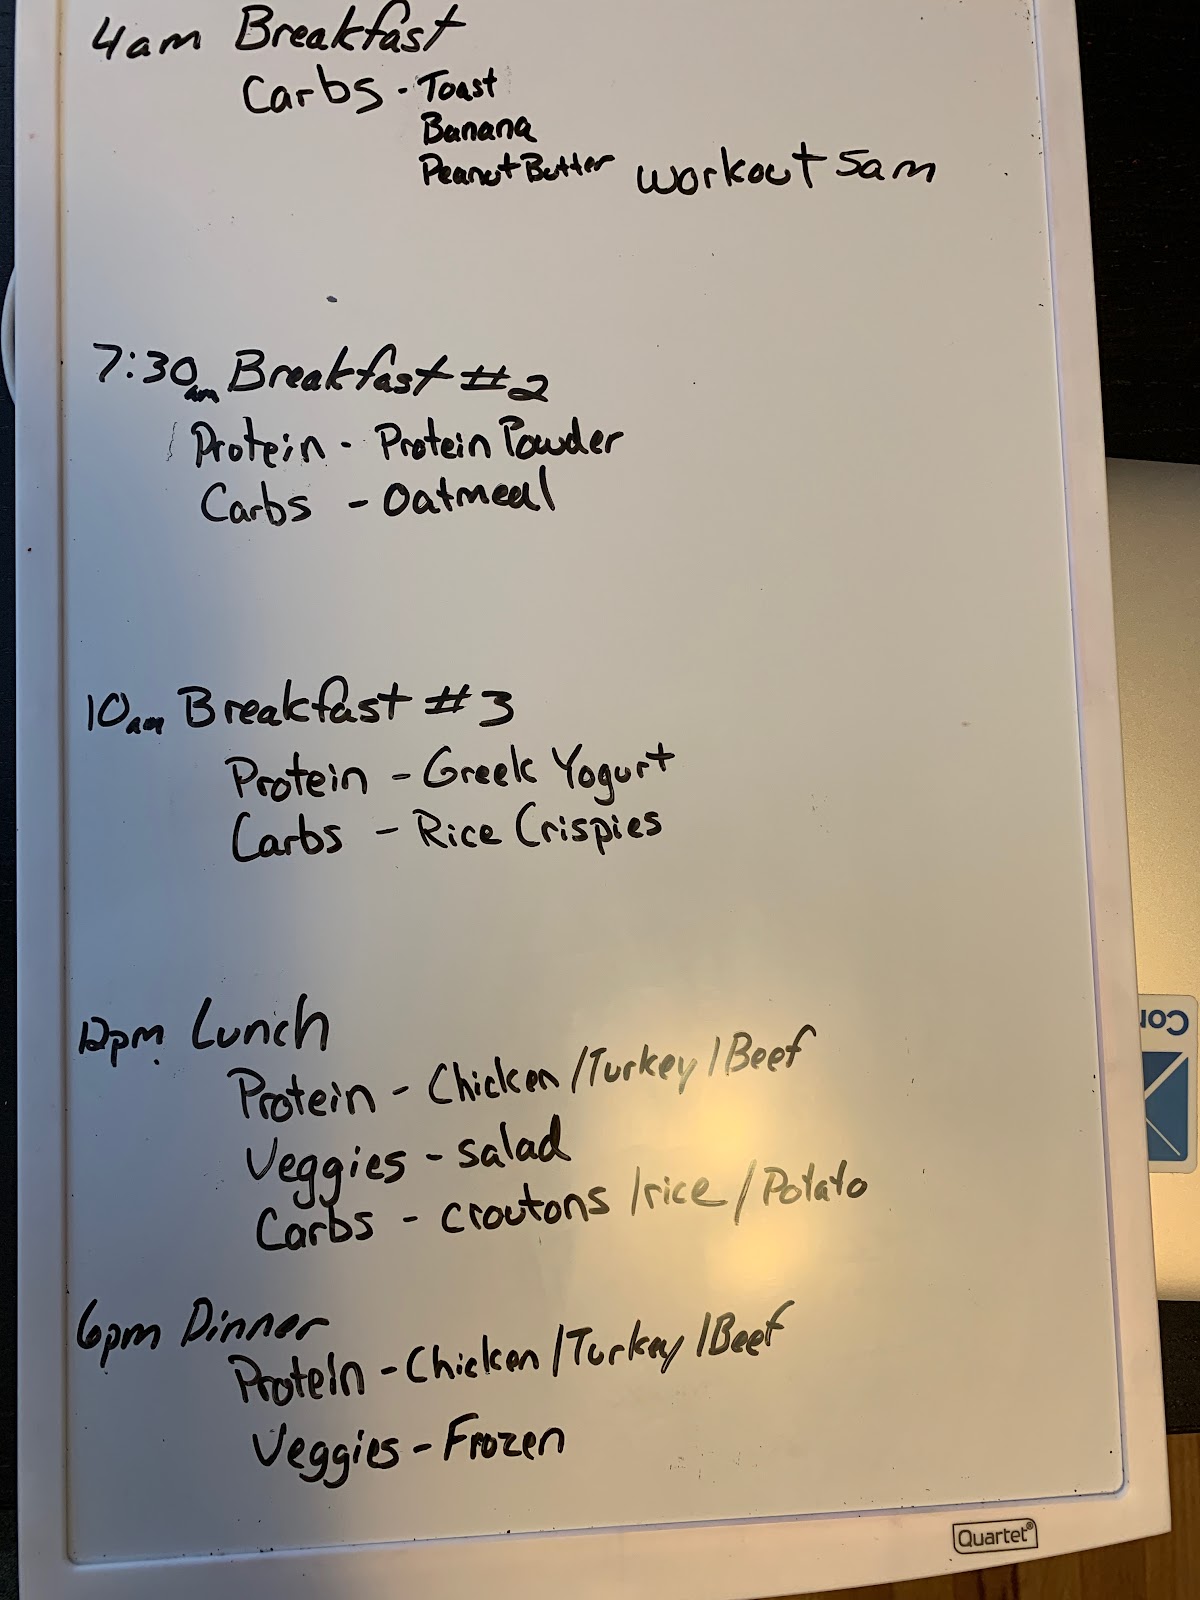 4am Breakfast
Carbs - Toast
Banana
Peanut Butter workout 5am
7:30am Breakfast #2
Protein - Protein Powder
Carbs - Oatmeal
10am Breakfast #3
Protein - Greek Yogurt
Carbs - Rice Crispies
12pm Lunch
Protein - Chicken /Turkey /Beef
Veggies - salad
Carbs - croutons /rice / Potato
6pm Dinner
Protein - Chicken /Turkey /Beef
Veggies - Frozen
Quartet®
Cor